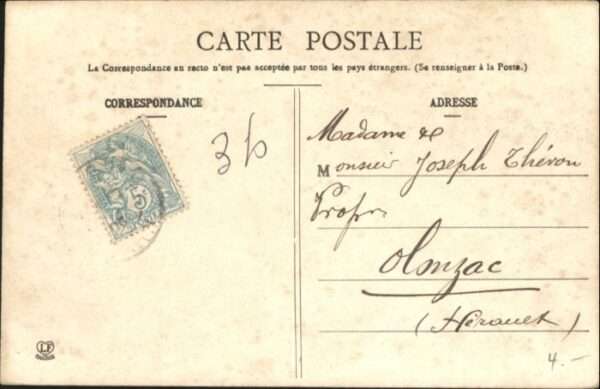 CARTE POSTALE
La Correspondance au recto n'est pas acceptée par tous les pays étrangers. (Se renseigner à la Poste.)
CORRESPONDANCE
ADRESSE
Madame &
Monsieur Joseph Théron
Propre
Olonzac
(Hérault)
5
LF
4.-